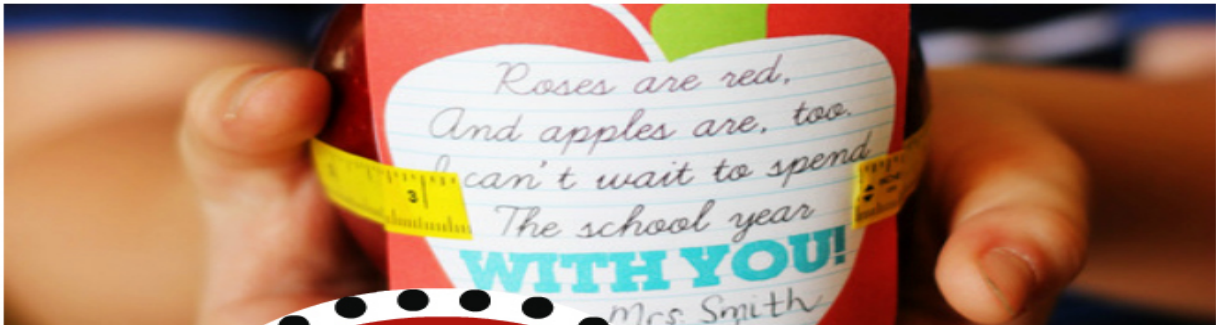 Roses are red,
And apples are, too.
I can't wait to spend
The school year
WITH YOU!
Mrs. Smith
3